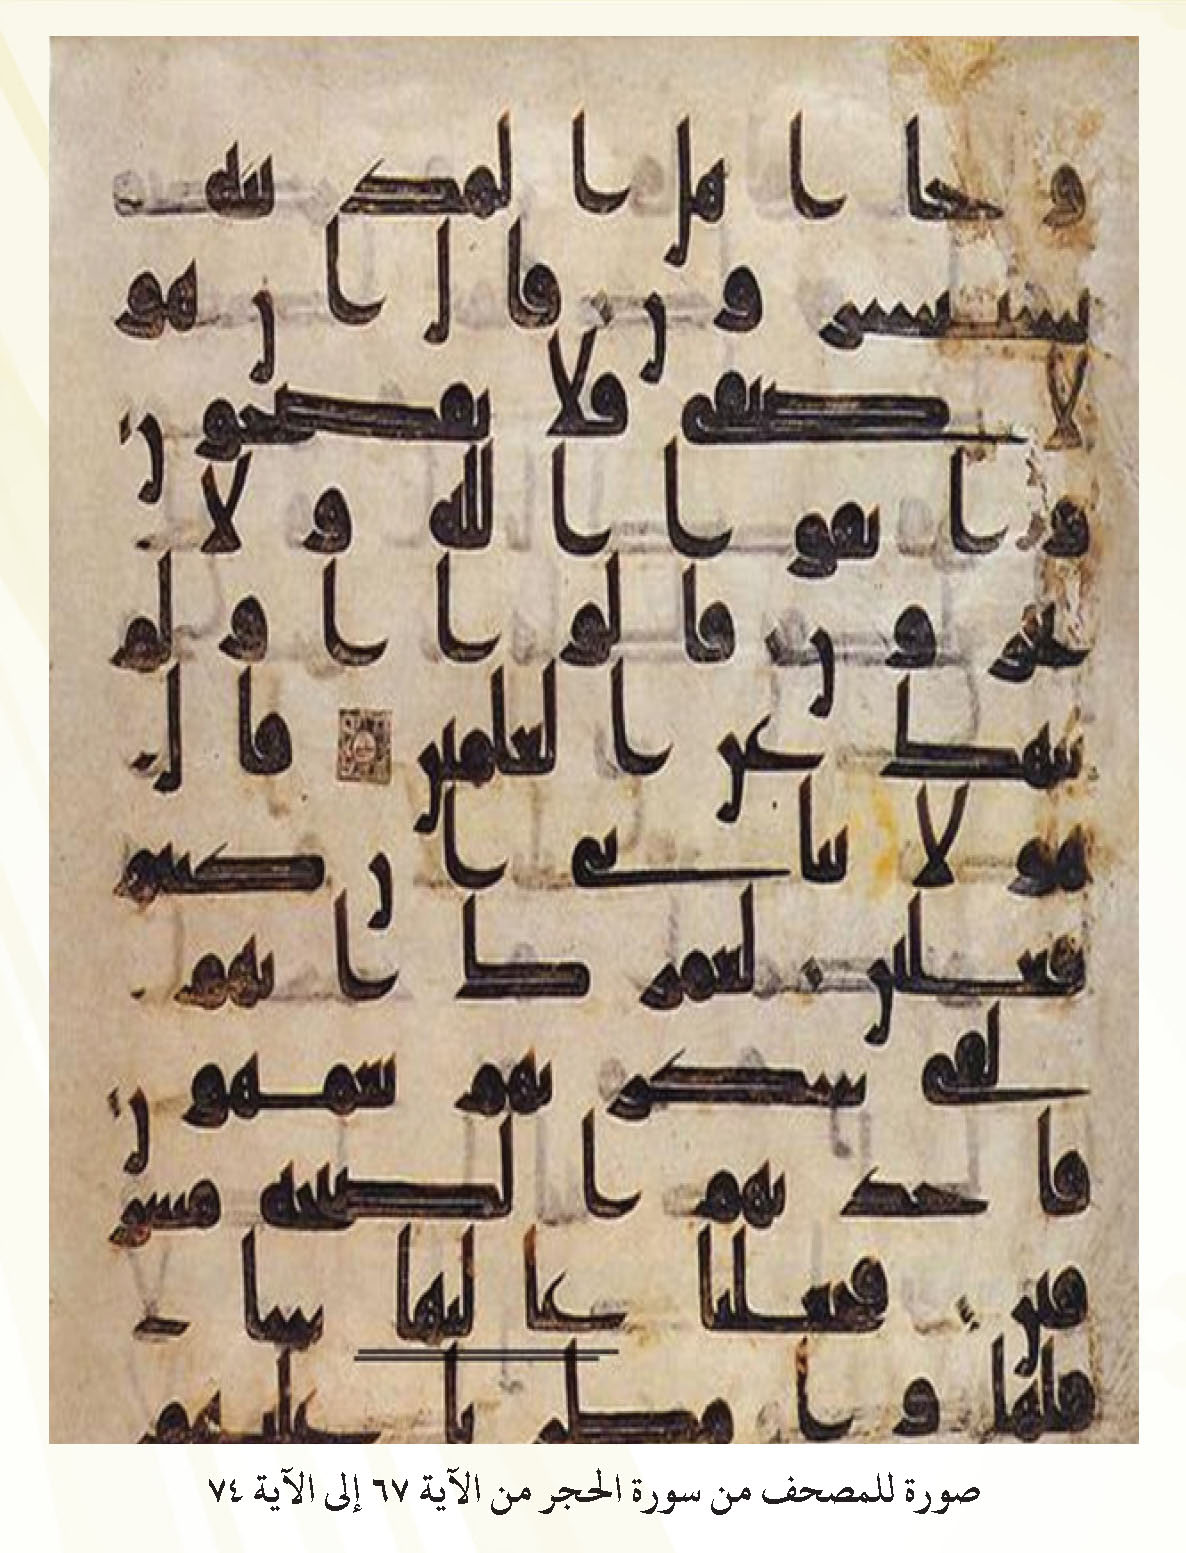 وجا اهل المدينه
يستبشرون قال ان هو
لا ضيفي فلا تفضحون
واتقوا الله ولا
تخزون قالوا اولم
ننهك عن العلمين قال
هولا بناتي ان كنتم
فعلين لعمرك انهم
لفي سكرتهم يعمهون
فاخذتهم الصيحه مشر
قين فجعلنا عاليها سا
فلها وامطرنا عليهم
صورة للمصحف من سورة الحجر من الآية ٦٧ إلى الآية ٧٤